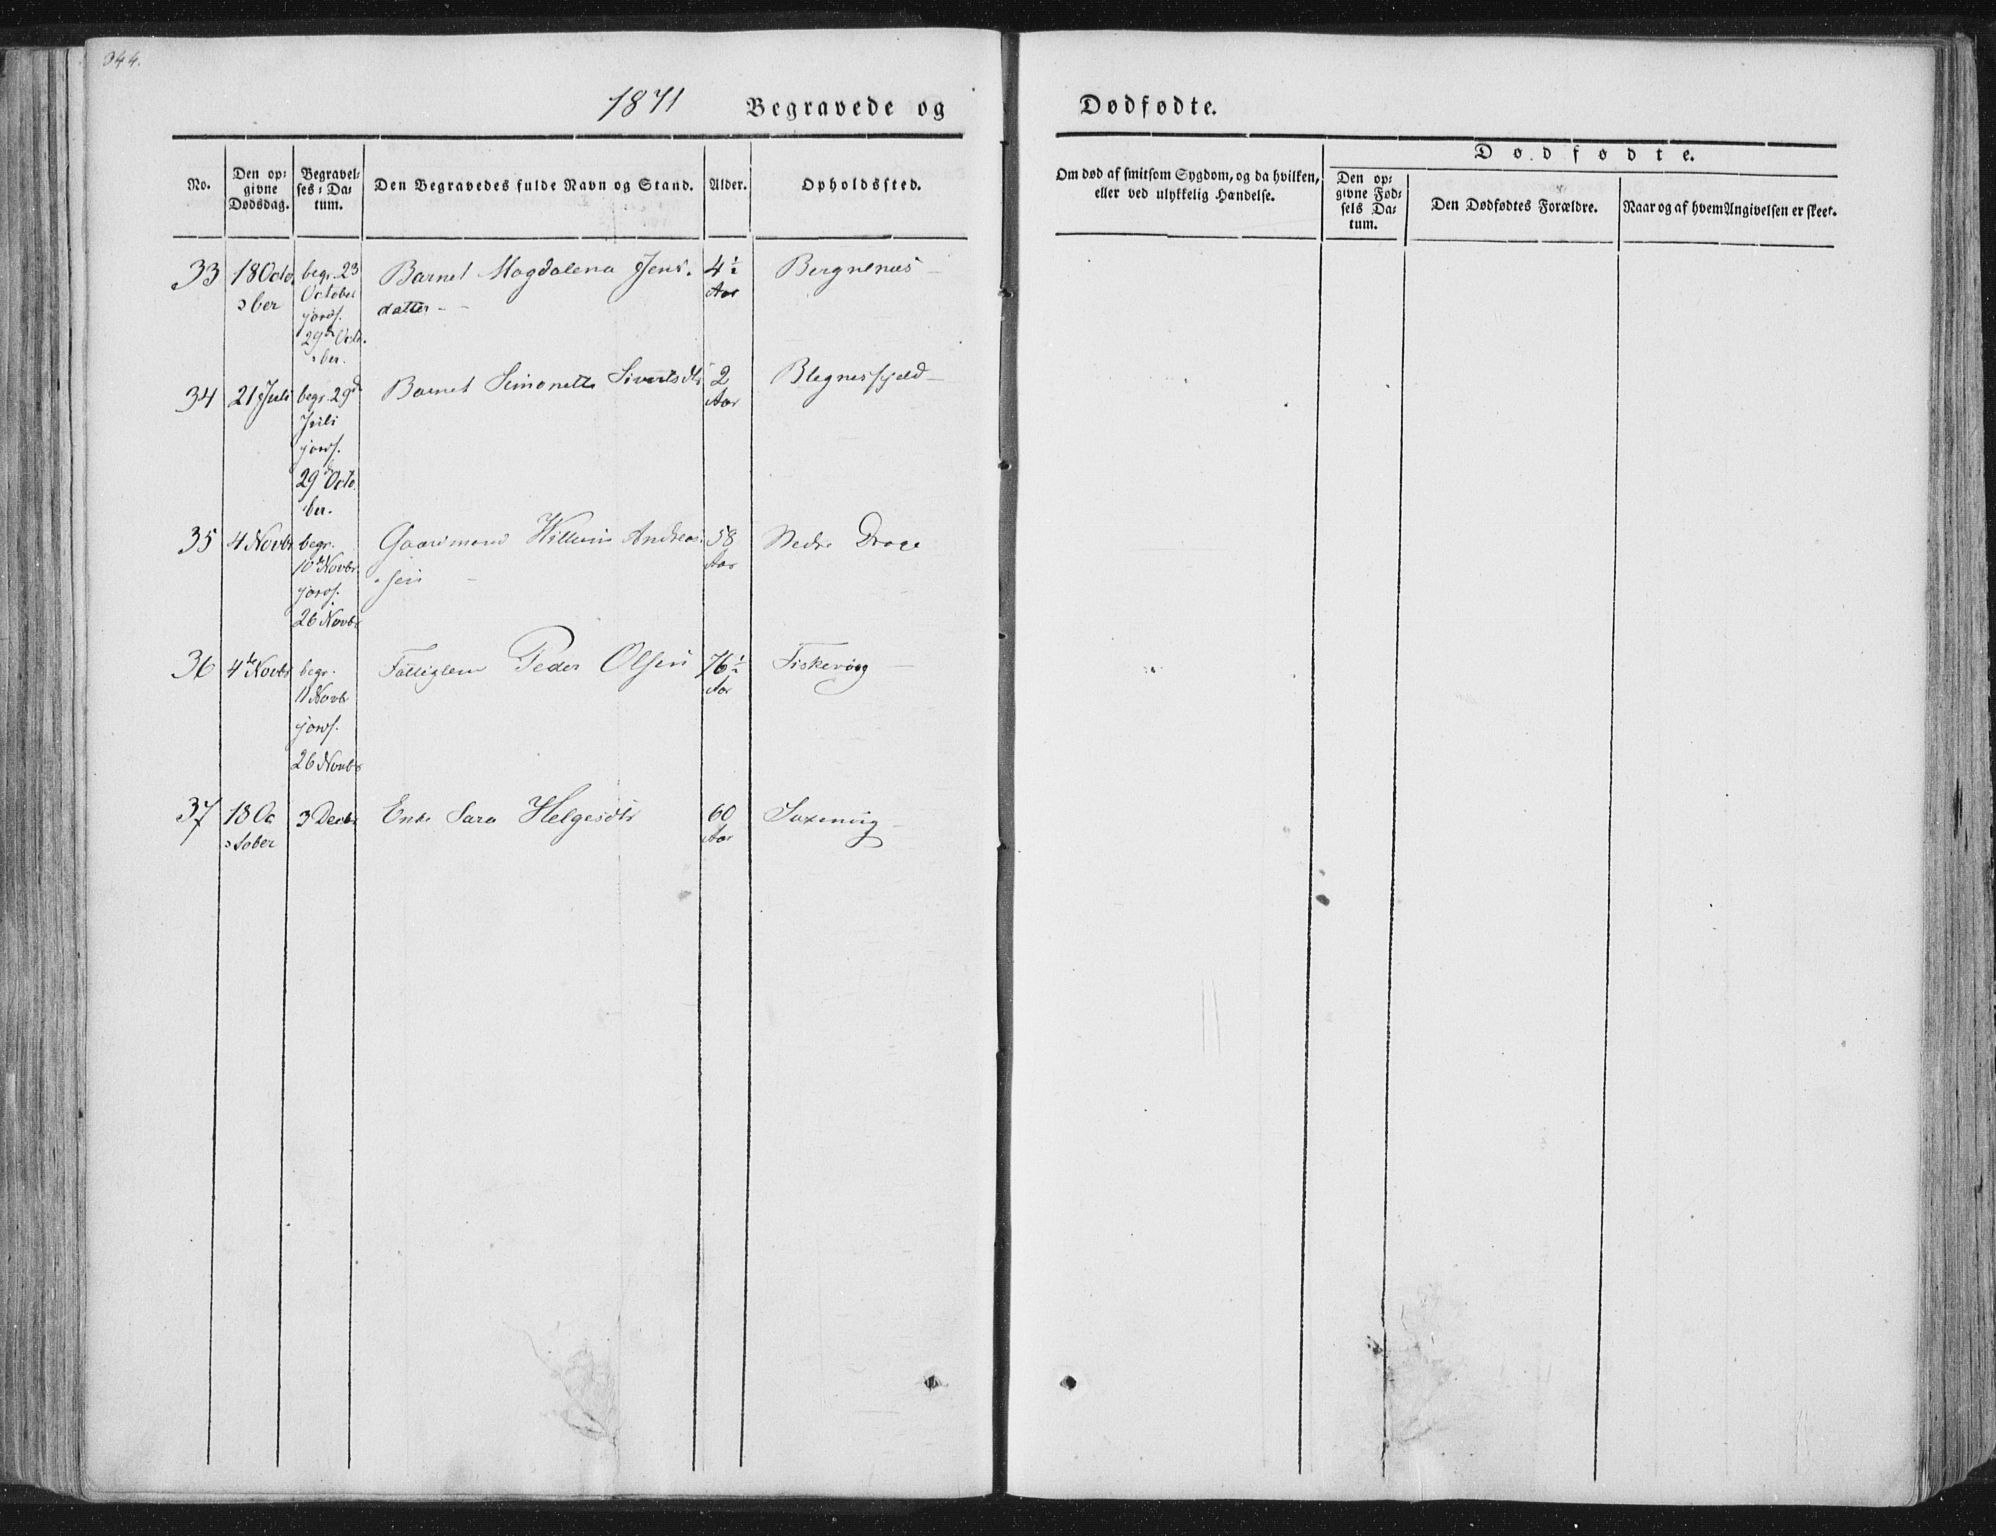 344.
1871 Begravede og
Dødfødte.
No.
Den op-
givne
Dødsdag.
Begravel-
ses-Da-
tum.
Den Begravedes fulde Navn og Stand.
Alder.
Opholdssted.
Om død af smitsom Sygdom, og da hvilken,
eller ved ulykkelig Hændelse.
Dødfødte.
Den op-
givne Fød-
sels Da-
tum.
Den Dødfødtes Forældre.
Naar og af hvem Angivelsen er skeet.
33 18 Octo
ber
begr. 23
October
jordf.
29de Octo
ber.
Barnet Magdalena Jens
datter
4½
Aar
34 21 Juli
begr. 29de
Juli
jordf.
29de Octo
ber.
Barnet Simonette Sivertsdtr
2
Aar
Blegnesfjeld
35 4 Novbr
begr.
10de Novbr
jordf.
26 Novbr
Gaardmand Willum Andreas
sen
58
Aar
Nedre
36 4de Novbr
begr.
11 Novbr
jordf.
26 Novbr
Fattiglem Peder Olsen
76½
Aar
Fiskevaag
37 18 Oc
tober
3 Decbr
Enke Sara Helgesdtr
60
Aar